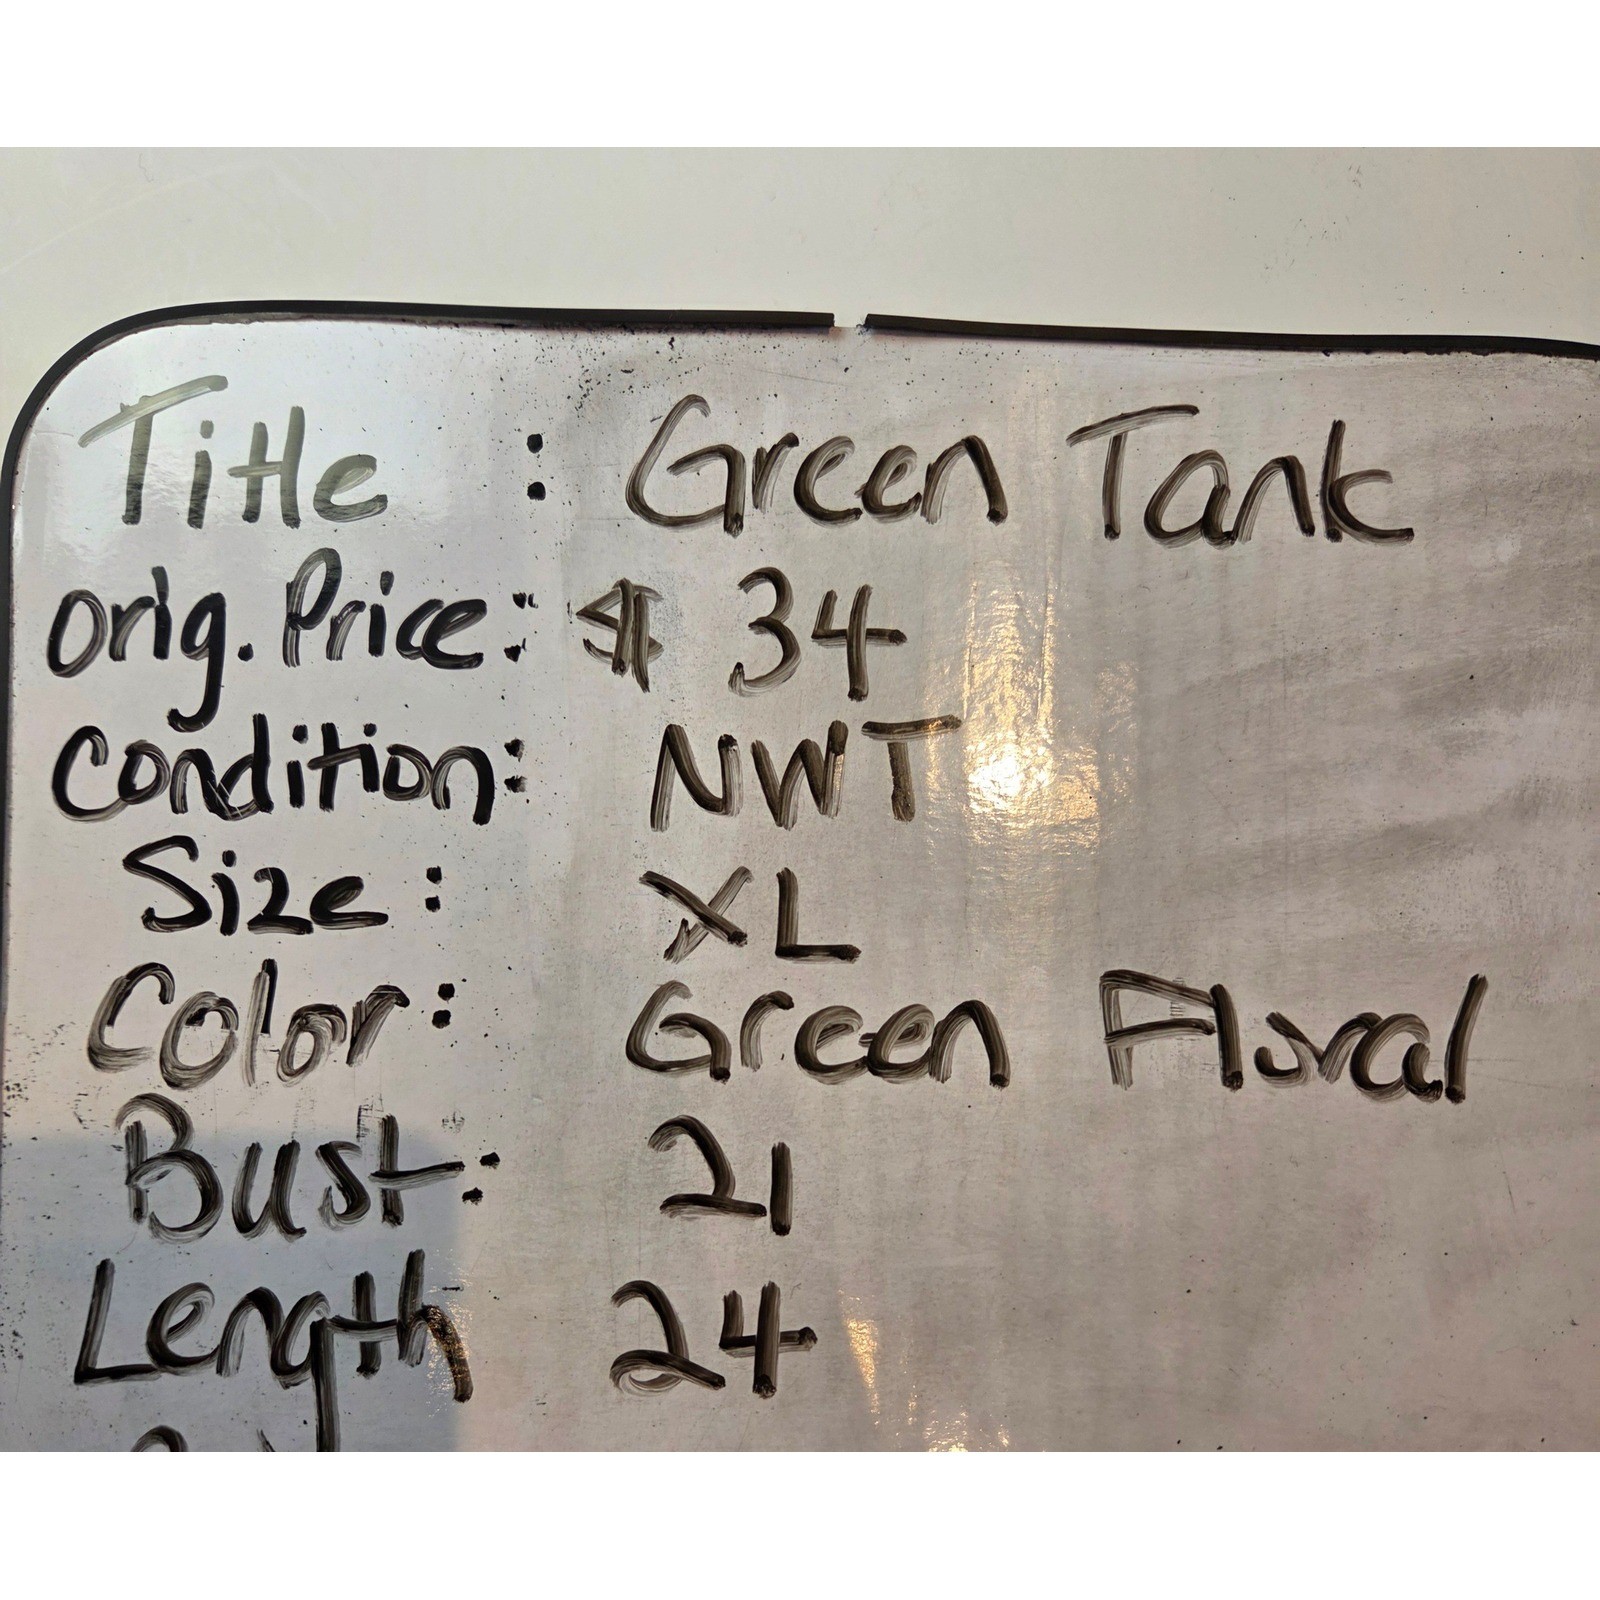 Title : Green Tank
Orig. Price: $ 34
Condition: NWT
Size: XL
Color: Green Floral
Bust: 21
Length 24